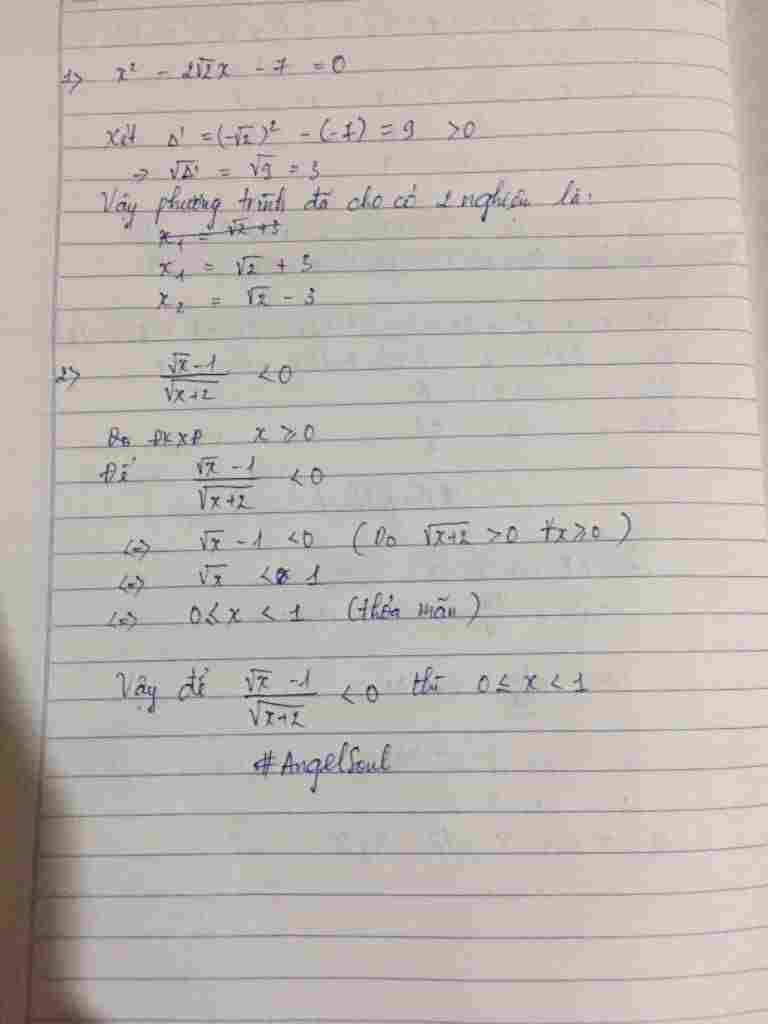 1> x² - 2√2x - 7 = 0
Xét Δ' = (-√2)² - (-7) = 9 > 0
=> √Δ' = √9 = 3
Vậy phương trình đã cho có 2 nghiệm là:
x₁ = √2 + 3
x₁ = √2 + 3
x₂ = √2 - 3
2> (√x - 1)/(√(x+2)) < 0
ĐKXĐ x ≥ 0
Để (√x - 1)/(√(x+2)) < 0
<=> √x - 1 < 0 (Do √(x+2) > 0 ∀x ≥ 0)
<=> √x < 1
<=> 0 ≤ x < 1 (thỏa mãn)
Vậy để (√x - 1)/(√(x+2)) < 0 thì 0 ≤ x < 1
#AngelSoul